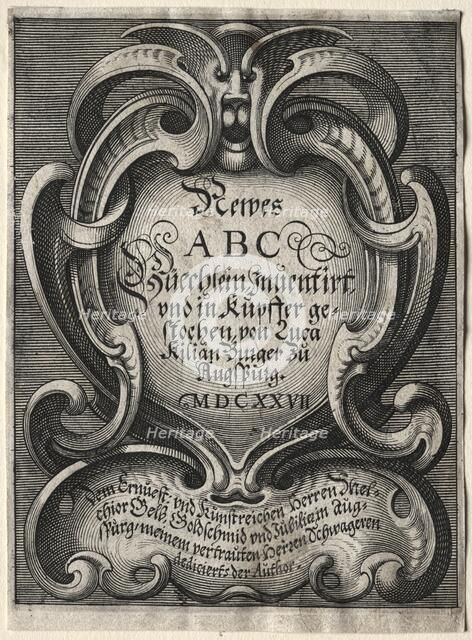 Newes
ABC
Büechlein Inuentirt
vnd in Kupffer ge-
stochen, von Luca
Kilian Burger zu
Augspurg.
MDCXXVII
dem Ernuest vnd Kunstreichen Herren
chior Gelb, Goldschmid vnd Iubilier in Aug-
spurg, meinem vertrauten Herren Schwageren
dedicierts der Author.
Heritage
Heritage
Heritage
Heritage
Heritage
Heritage